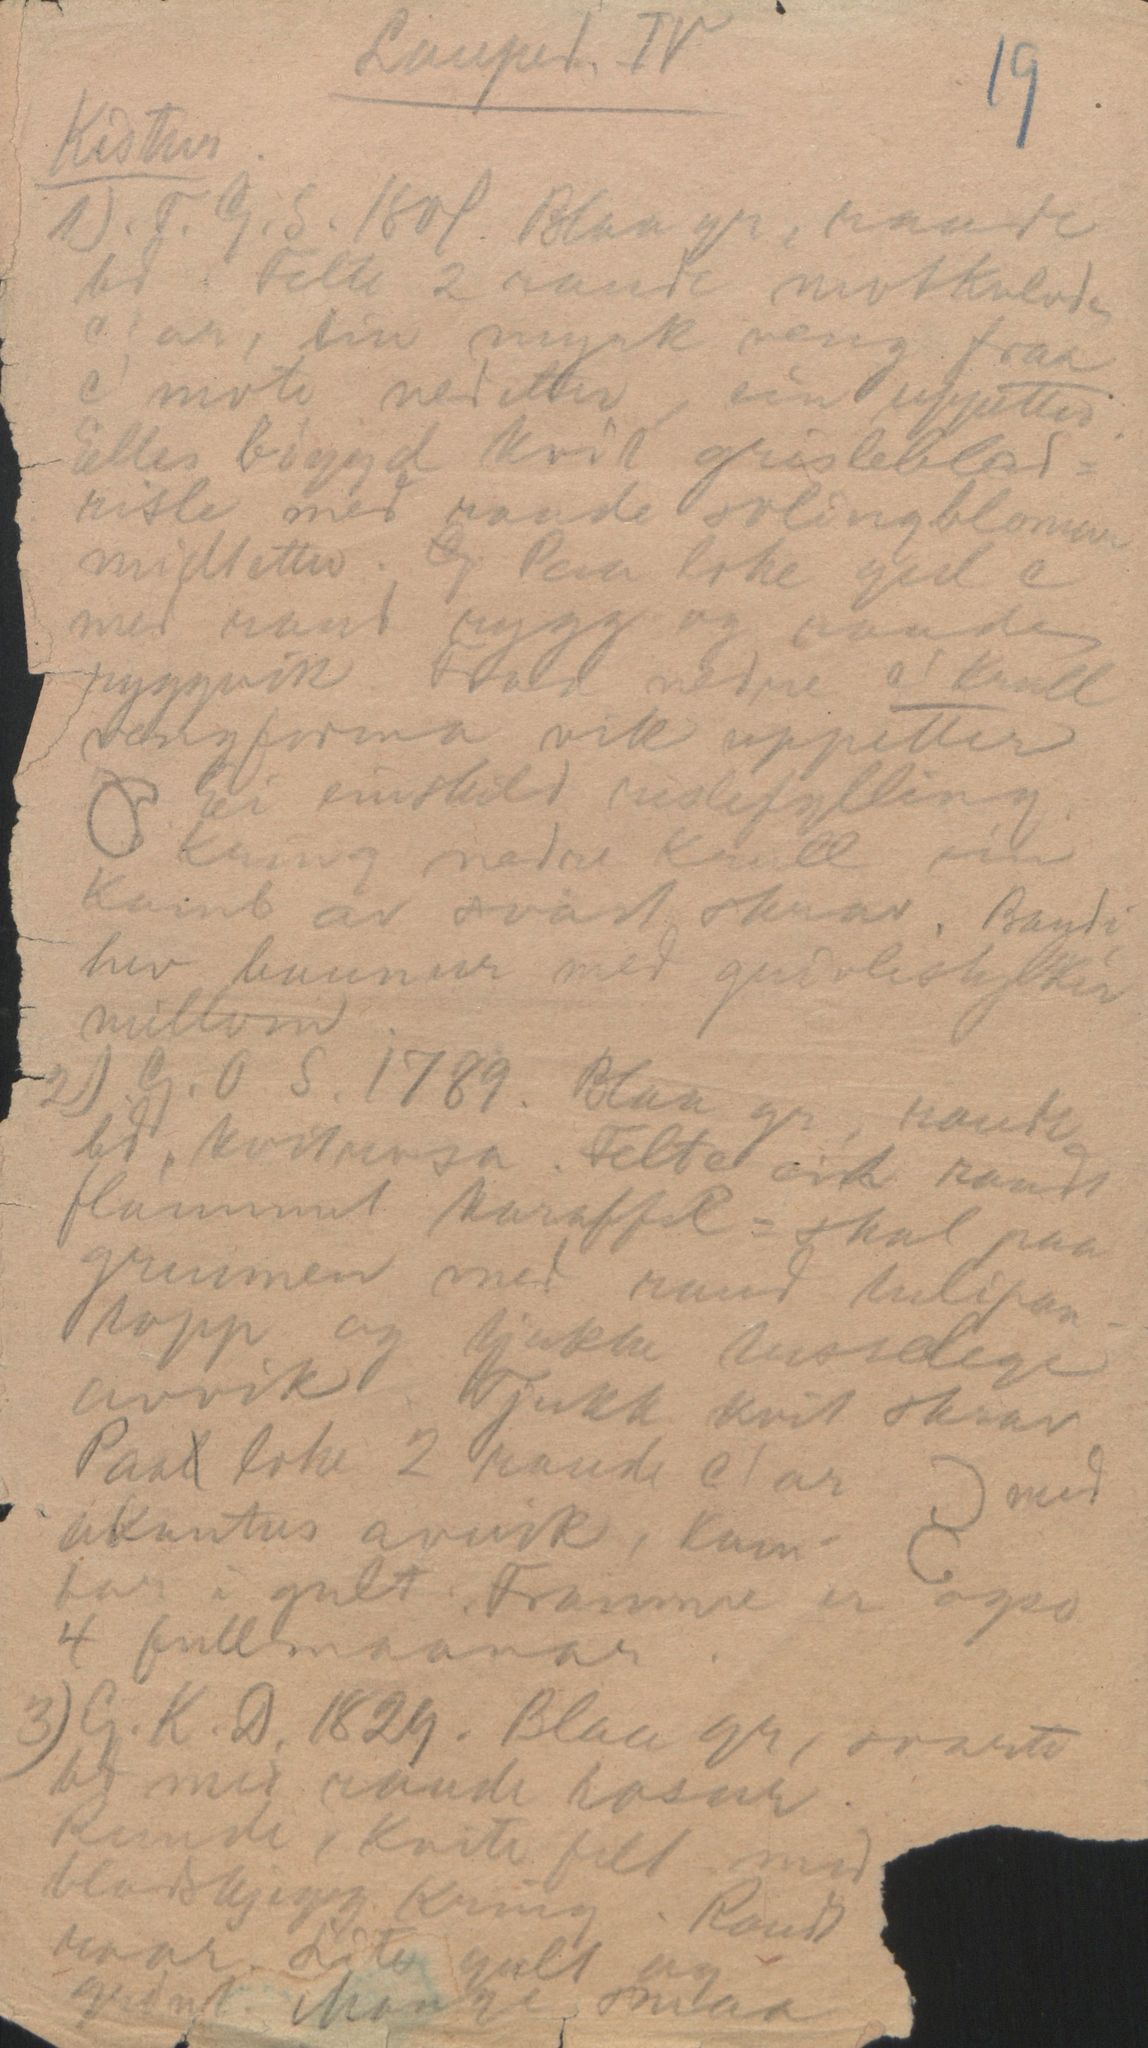 Lauperd. IV
19
Kistur.
1). T. G. S. 1801. Blaa gr, raude
bd. Felte 2 raude motskolode
c'ar, ein mjuk veng fraa
c' mote nedetter, ein uppetter.
Elles bøygd kvit grisleblad=
risle med raude solingblomar
midtetter. Paa loke gul c
med raud rygg og raude
ryggvik. Fraa nedre c' krull
vengforma vik uppetter
Ei einskild rislefylling.
Kring nedre krull ein
Kamb av svart skrav. Bandi
hev baunur med
millom.
2) G. O S. 1789. Blaa gr, raude
bd, kvitrursa. Felte eith raudt
flammut karaffel=skal paa
grunnen med raud tulipan-
topp og tjukke tusselege
avvik. Tjukk kvit skrav
Paa loke 2 raude c'ar med
akantus avvik, Kam-
bar i gult. Framme er ogso
4 fullmaanar.
3) G. K. D. 1829. Blaa gr, svarte
bd med raude rosur.
Runde, kvite felt med
bladskjegg kring. Raudt
raar. Lite gult og
grønt. Mange smaa